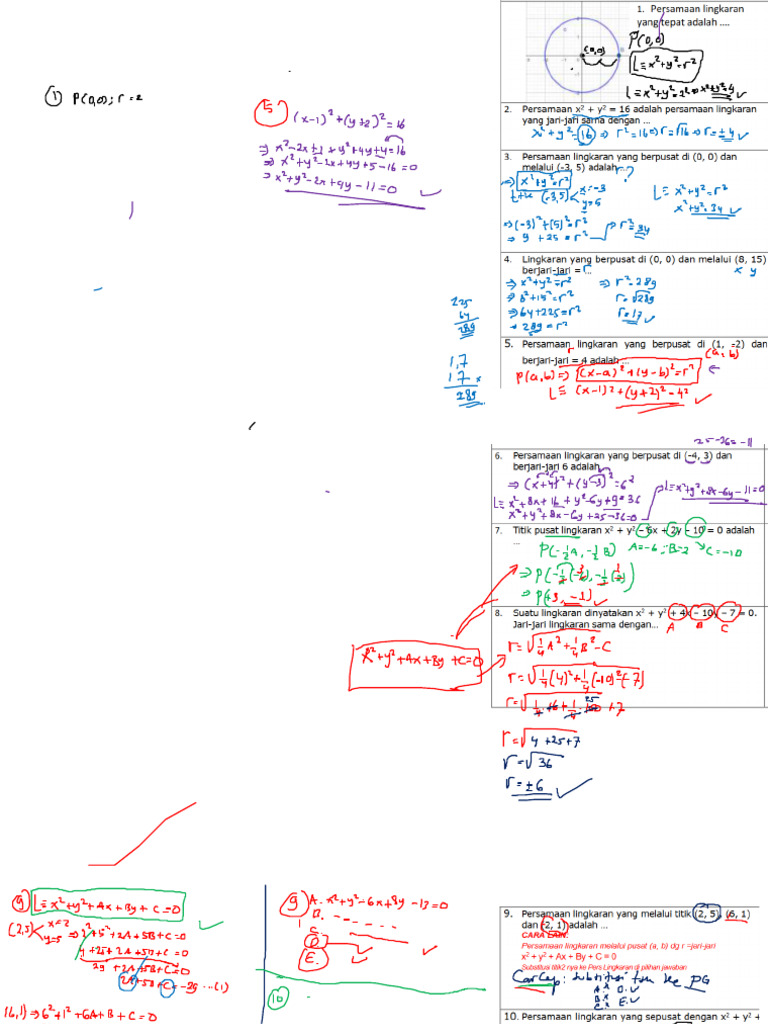 1. Persamaan lingkaran
yang tepat adalah ....
P(0,0)
(0,0)
L ≡ x²+y²=r²
L ≡ x²+y²=2² ⇒ x²+y²=4
① P(0,0); r=2
5
(x-1)²+(y+2)²=16
⇒ x²-2x+1+y²+4y+4=16
⇒ x²+y²-2x+4y+5-16=0
⇒ x²+y²-2x+4y-11=0
2. Persamaan x² + y² = 16 adalah persamaan lingkaran
yang jari-jari sama dengan ...
x²+y²=16 ⇒ r²=16 ⇒ r=√16 ⇒ r=±4
3. Persamaan lingkaran yang berpusat di (0, 0) dan
melalui (-3, 5) adalah... r?
⇒ x²+y²=r²
titik (-3,5) x=-3
y=5
L ≡ x²+y²=r²
x²+y²=34
⇒ (-3)²+(5)²=r²
⇒ 9 + 25 = r² ⇒ r²=34
4. Lingkaran yang berpusat di (0, 0) dan melalui (8, 15)
berjari-jari = ...
x y
⇒ x²+y²=r² ⇒ r²=289
⇒ 8²+15²=r² r=√289
⇒ 64+225=r² r=17
289=r²
225
64
289
1,7
17 x
289
5. Persamaan lingkaran yang berpusat di (1, -2) dan
berjari-jari = 4 adalah ...
(a,b)
P(a,b) ⇒ (x-a)²+(y-b)²=r²
L ≡ (x-1)²+(y+2)²=4²
25-36=-11
6. Persamaan lingkaran yang berpusat di (-4, 3) dan
berjari-jari 6 adalah
⇒ (x+4)²+(y-3)²=6²
L ≡ x²+y²+8x-6y-11=0
L ≡ x²+8x+16+y²-6y+9=36
x²+y²+8x-6y+25-36=0
7. Titik pusat lingkaran x² + y² - 6x + 2y - 10 = 0 adalah
...
P(-½A, -½B) A=-6, B=2 C=-10
⇒ P(-½(-6), -½(2))
⇒ P(+3, -1)
8. Suatu lingkaran dinyatakan x² + y² + 4 - 10 - 7 = 0.
Jari-jari lingkaran sama dengan...
A B C
x²+y²+Ax+By+C=0
r=√¼A²+¼B²-C
r=√¼(4)²+¼(-10)²-(-7)
r=√¼·16+¼·100+7
25
r=√4+25+7
r=√36
r=±6
9 L ≡ x²+y²+Ax+By+C=0
(2,5) x=2
y=5 ⇒ 2²+5²+2A+5B+C=0
4+25+2A+5B+C=0
29+2A+5B+C=0
2A+5B+C=-29 ...(1)
(6,1) ⇒ 6²+1²+6A+B+C=0
9 A. x²+y²-6x+8y-13=0
B.
C.
D
E.
10
9. Persamaan lingkaran yang melalui titik (2, 5), (6, 1)
dan (2, 1) adalah ...
CARA LAIN:
Persamaan lingkaran melalui pusat (a, b) dg r =jari-jari
x² + y² + Ax + By + C = 0
Substitus titik2 nya ke Pers Lingkaran di pilihan jawaban
CarCep: substitusi ttk ke PG
A. x D. ✓
B. x E. ✓
C. x
10. Persamaan lingkaran yang sepusat dengan x² + y² +